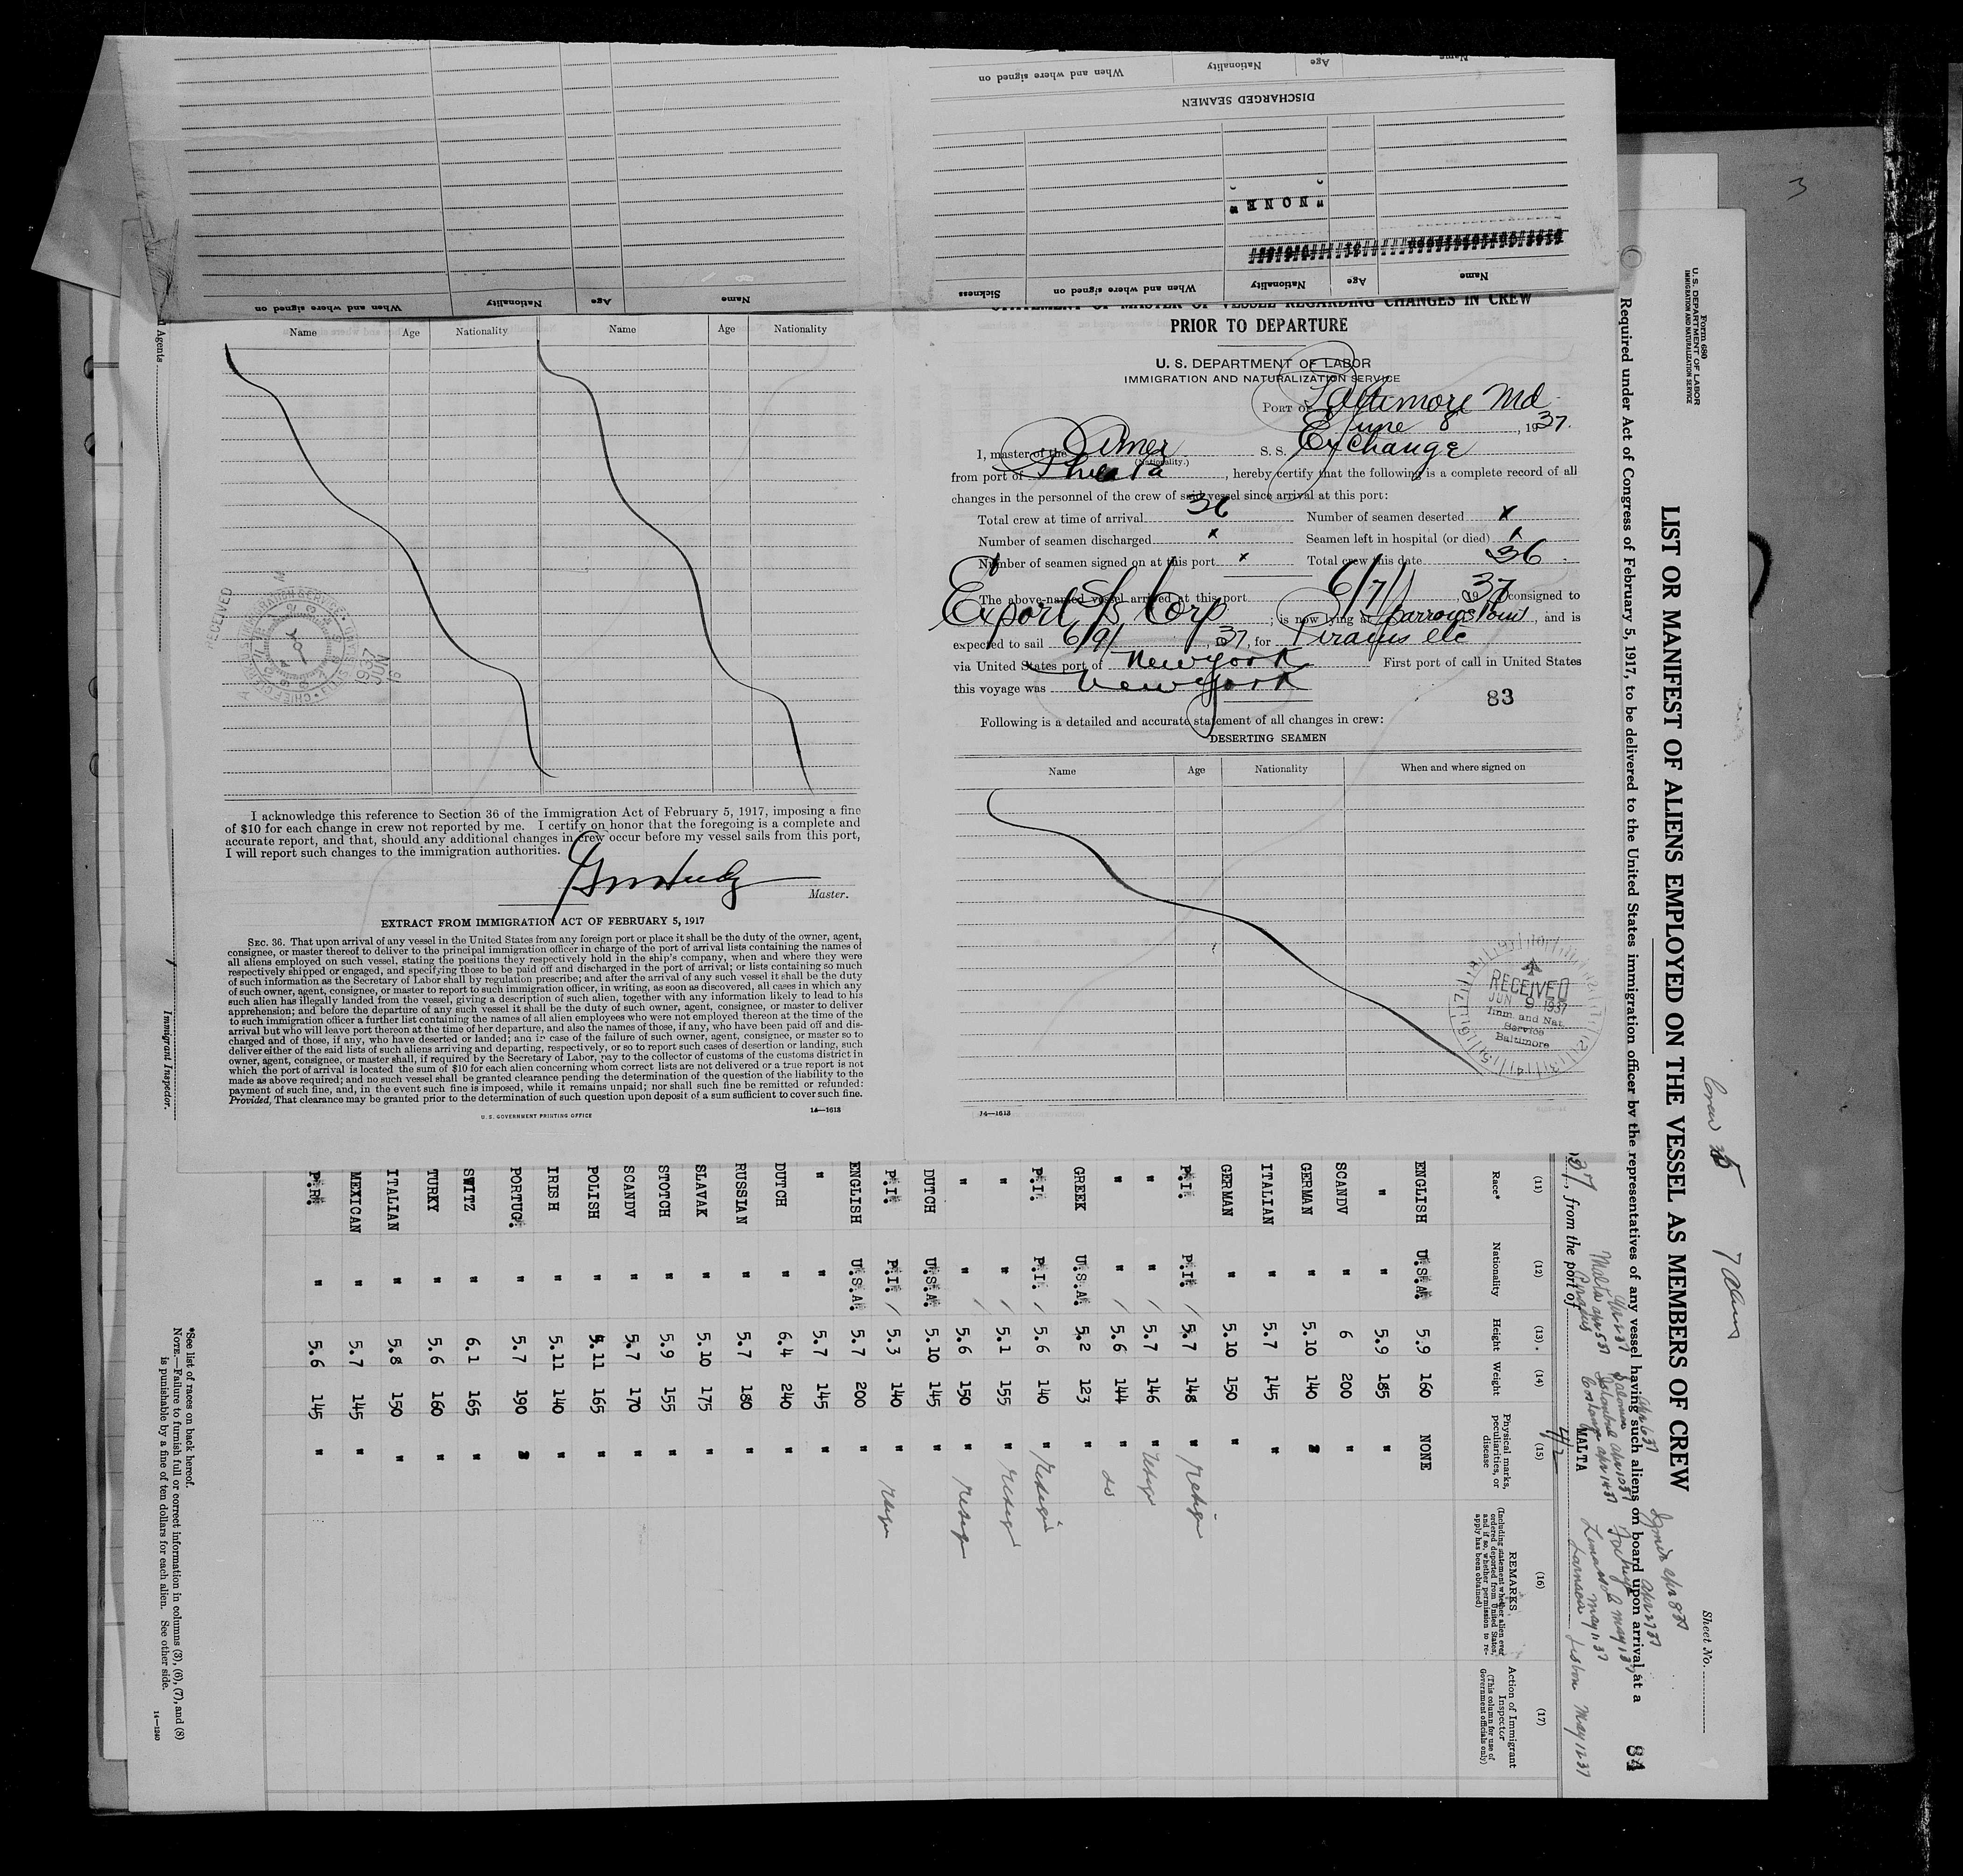 When and where signed on Nationality Age Name
DISCHARGED SEAMEN
"NONE"
Name Age Nationality When and where signed on Sickness
Name Age Nationality When and where signed on
STATEMENT OF MASTER OF VESSEL REGARDING CHANGES IN CREW
PRIOR TO DEPARTURE
U. S. DEPARTMENT OF LABOR
IMMIGRATION AND NATURALIZATION SERVICE
PORT OF Baltimore Md
June 8, 1937.
I, master of the Amer S. S. Exchange
(Nationality.)
from port of , hereby certify that the following is a complete record of all
changes in the personnel of the crew of said vessel since arrival at this port:
Total crew at time of arrival 36 Number of seamen deserted x
Number of seamen discharged x Seamen left in hospital (or died) x
Number of seamen signed on at this port x Total crew this date 36
The above-named vessel arrived at this port 6/7/, 1937, consigned to
Export SS Corp; is now lying at Sparrows Point, and is
expected to sail 6/9/, 37, for Piraeus etc
via United States port of New York First port of call in United States
this voyage was New York
83
Following is a detailed and accurate statement of all changes in crew:
DESERTING SEAMEN
Name Age Nationality When and where signed on
RECEIVED
JUN 9 1937
Imm. and Nat.
Service
Baltimore
14—1613
Name Age Nationality Name Age Nationality
RECEIVED
I acknowledge this reference to Section 36 of the Immigration Act of February 5, 1917, imposing a fine
of $10 for each change in crew not reported by me. I certify on honor that the foregoing is a complete and
accurate report, and that, should any additional changes in crew occur before my vessel sails from this port,
I will report such changes to the immigration authorities.
Master.
EXTRACT FROM IMMIGRATION ACT OF FEBRUARY 5, 1917
SEC. 36. That upon arrival of any vessel in the United States from any foreign port or place it shall be the duty of the owner, agent,
consignee, or master thereof to deliver to the principal immigration officer in charge of the port of arrival lists containing the names of
all aliens employed on such vessel, stating the positions they respectively hold in the ship's company, when and where they were
respectively shipped or engaged, and specifying those to be paid off and discharged in the port of arrival; or lists containing so much
of such information as the Secretary of Labor shall by regulation prescribe; and after the arrival of any such vessel it shall be the duty
of such owner, agent, consignee, or master to report to such immigration officer, in writing, as soon as discovered, all cases in which any
such alien has illegally landed from the vessel, giving a description of such alien, together with any information likely to lead to his
apprehension; and before the departure of any such vessel it shall be the duty of such owner, agent, consignee, or master to deliver
to such immigration officer a further list containing the names of all alien employees who were not employed thereon at the time of the
arrival but who will leave port thereon at the time of her departure, and also the names of those, if any, who have been paid off and dis-
charged and of those, if any, who have deserted or landed; and in case of the failure of such owner, agent, consignee, or master so to
deliver either of the said lists of such aliens arriving and departing, respectively, or so to report such cases of desertion or landing, such
owner, agent, consignee, or master shall, if required by the Secretary of Labor, pay to the collector of customs of the customs district in
which the port of arrival is located the sum of $10 for each alien concerning whom correct lists are not delivered or a true report is not
made as above required; and no such vessel shall be granted clearance pending the determination of the question of the liability to the
payment of such fine, and, in the event such fine is imposed, while it remains unpaid; nor shall such fine be remitted or refunded:
Provided, That clearance may be granted prior to the determination of such question upon deposit of a sum sufficient to cover such fine.
U. S. GOVERNMENT PRINTING OFFICE 14—1613
Form 680
U. S. DEPARTMENT OF LABOR
IMMIGRATION AND NATURALIZATION SERVICE
Sheet No.
LIST OR MANIFEST OF ALIENS EMPLOYED ON THE VESSEL AS MEMBERS OF CREW
Required under Act of Congress of February 5, 1917, to be delivered to the United States immigration officer by the representatives of any vessel having such aliens on board upon arrival at a
84
Crew 7 Aliens
37, from the port of MALTA
Lisbon May 12 37
(11) (12) (13) (14) (15) (16) (17)
Race* Nationality Height Weight Physical marks, peculiarities, or disease
REMARKS (Including statement whether alien ever ordered deported from United States, and if so, whether permission to re-apply has been obtained)
Action of Immigrant Inspector (This column for use of Government officials only)
ENGLISH U.S.A. 5.9 160 NONE
" " 5.9 185 "
SCANDV " 6 200 "
GERMAN " 5.10 140 "
ITALIAN " 5.7 145 "
GERMAN " 5.10 150 "
P.I. P.I. / 5.7 148 "
" " / 5.7 146 "
" " / 5.6 144 " do
GREEK U.S.A. 5.2 123 "
P.I. P.I. / 5.6 140 "
" " / 5.1 155 "
" " / 5.6 150 "
DUTCH U.S.A. 5.10 145 "
P.I. P.I. / 5.3 140 "
ENGLISH U.S.A. 5.7 200 "
" " 5.7 145 "
DUTCH " 6.4 240 "
RUSSIAN " 5.7 180 "
SLAVAK " 5.10 175 "
STOTCH " 5.9 155 "
SCANDV " 5.7 170 "
POLISH " 5.11 165 "
IRISH " 5.11 140 "
PORTUG. " 5.7 190 "
SWITZ " 6.1 165 "
TURKY " 5.6 160 "
ITALIAN " 5.8 150 "
MEXICAN " 5.7 145 "
P.R. " 5.6 145 "
*See list of races on back hereof.
NOTE.—Failure to furnish full or correct information in columns (3), (6), (7), and (8)
is punishable by a fine of ten dollars for each alien. See other side.
14—1240
Agents.
Immigrant Inspector.